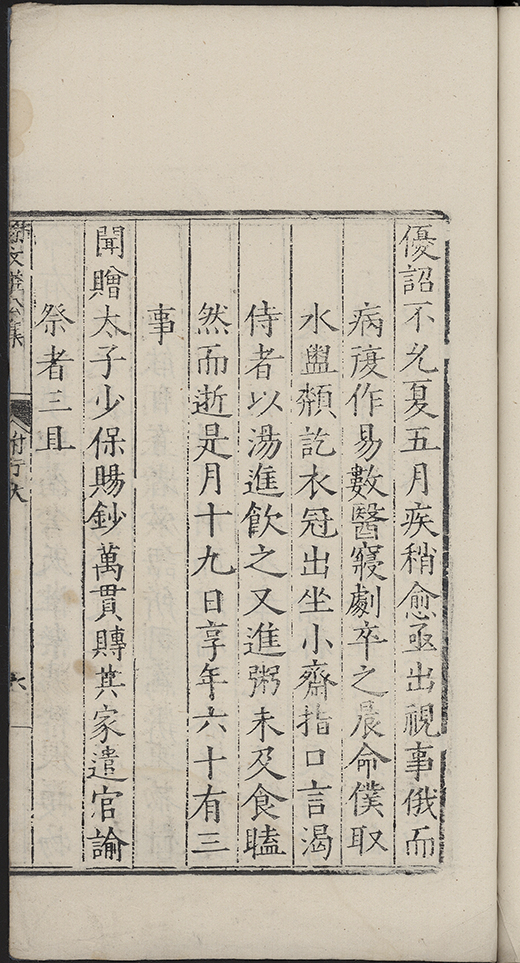 優詔不允夏五月疾稍愈亟出視事俄而
病復作易數醫寢劇卒之晨命僕取
水盥頮訖衣冠出坐小齋指口言渴
侍者以湯進飲之又進粥未及食瞌
然而逝是月十九日享年六十有三
事
聞贈太子少保賜鈔萬貫賻其家遣官諭
祭者三且
文 公集
附行狀
六